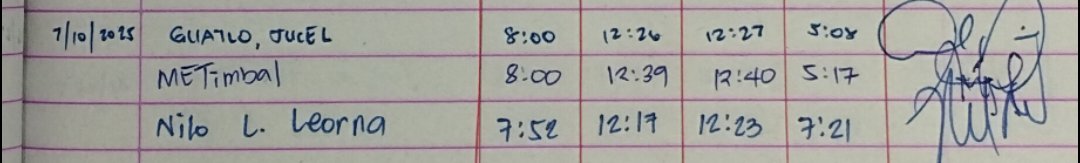 7/10/2025 GUATLO, JUCEL 8:00 12:26 12:27 5:08
METimbal 8:00 12:39 12:40 5:17
Nilo L. Leorna 7:52 12:17 12:23 7:21